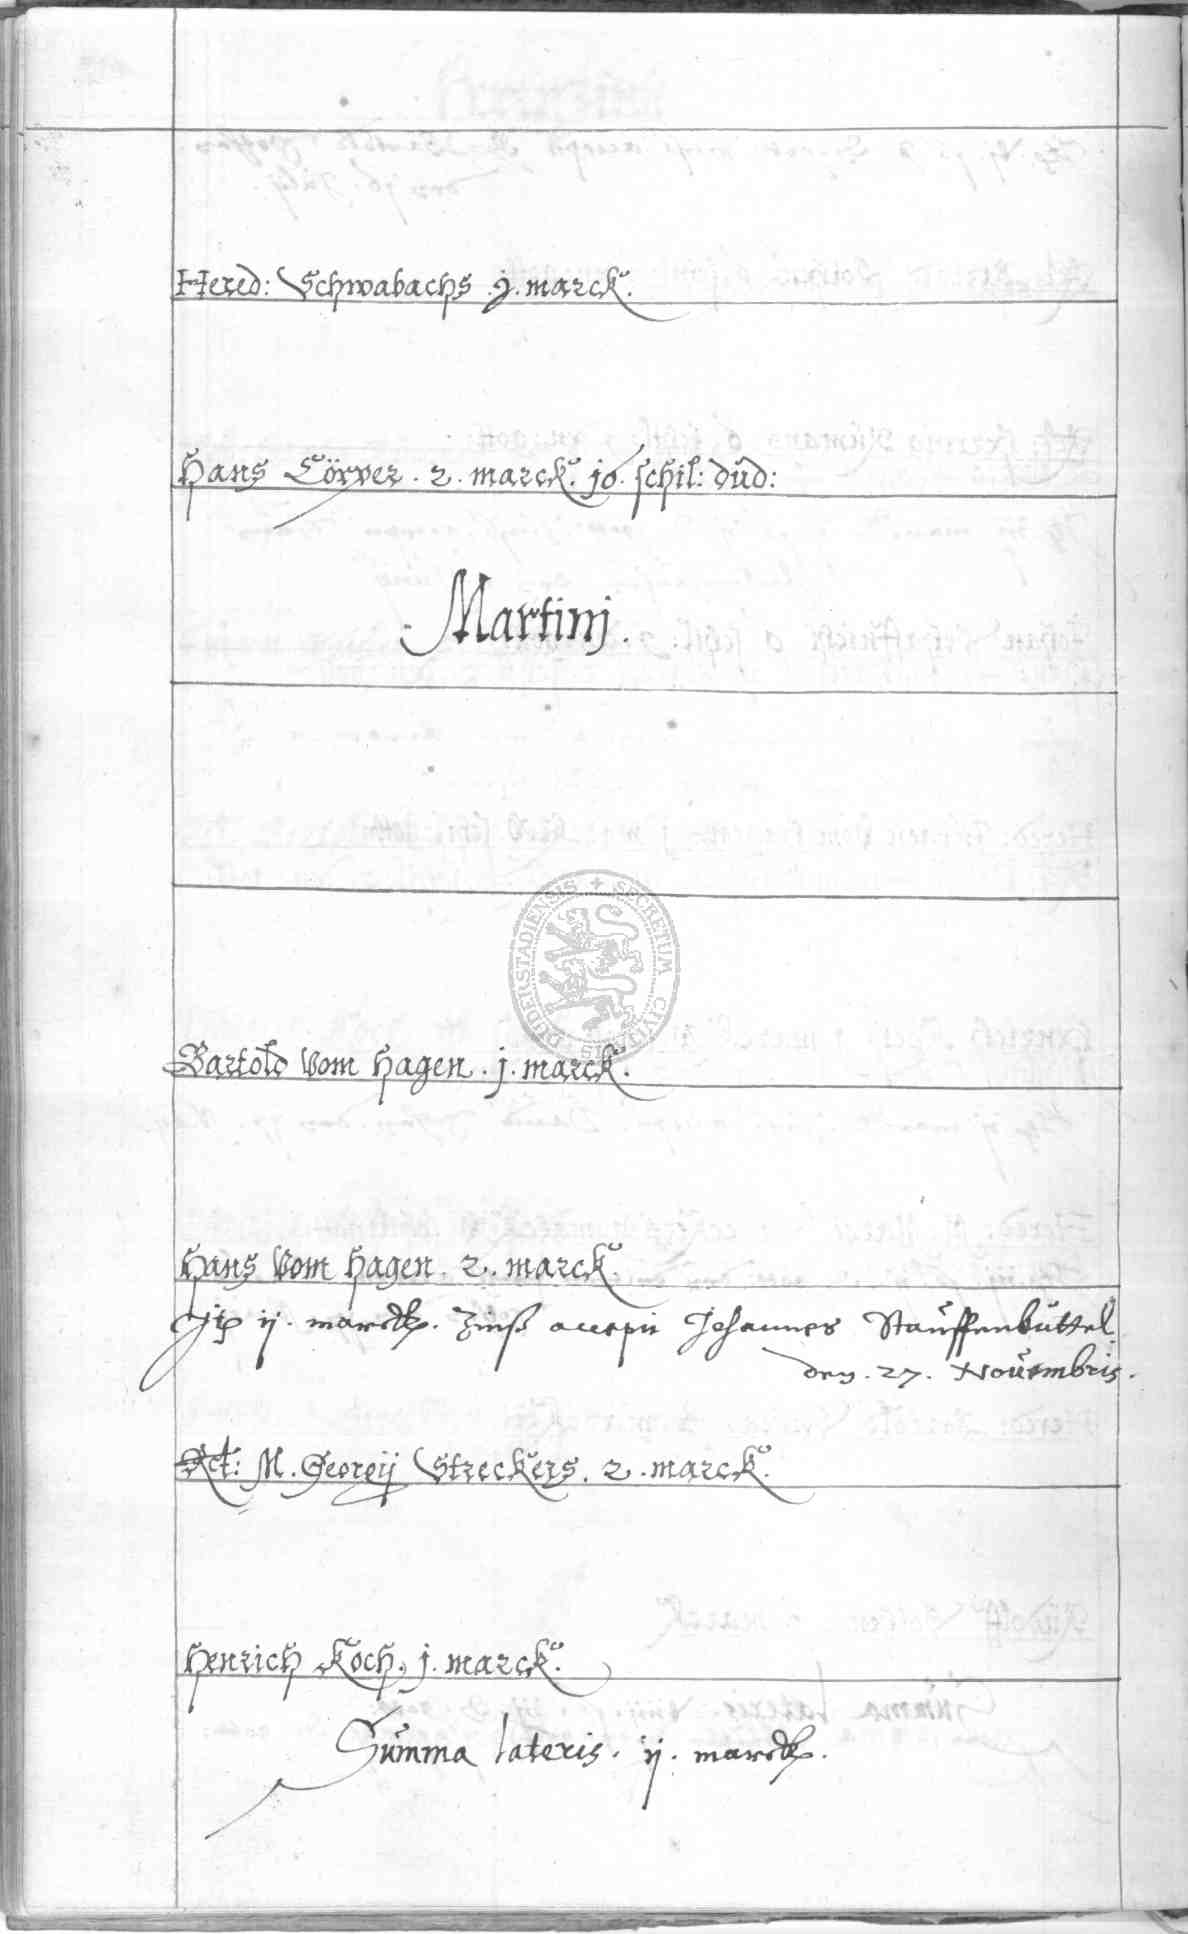 Hered: Schwabachs . j. marck.
Hans Cörver . 2 . marck. jo. schil: dud:
Martinj.
SECRETUM CIVITATIS DUDERSTADIENSIS
Bartold Vom Hagen . j. marck.
Hans Vom Hagen . 2 . marck.
ij. marck. Zinß accepit Johannes Stauffenbüttel
den . 27 . Nouembris.
Rct: M. Georgij Streckers . 2 . marck.
Henrich Koch, j. marck.
Summa lateris . ij. marck.